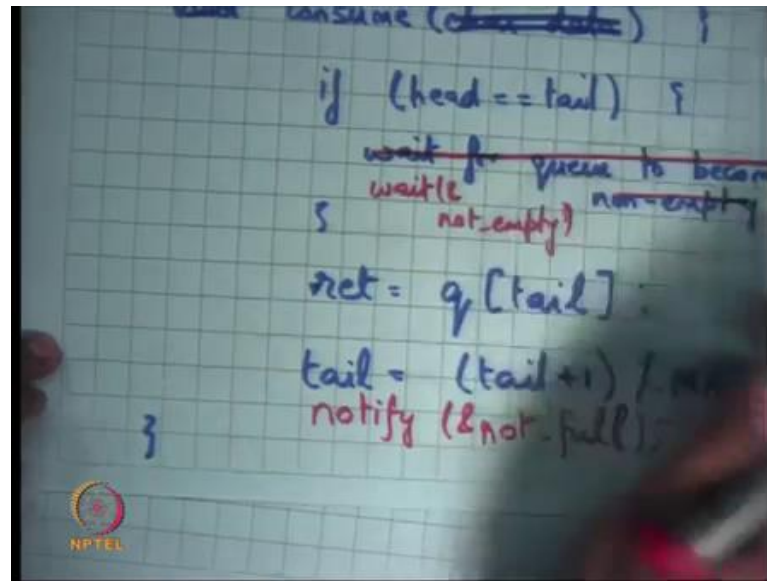 consume (
if (head == tail) {
wait for queue to becom
wait(&
non-empty
} not_empty)
ret = q [tail] ;
tail = (tail+1) %
notify (&not_full);
}
NPTEL